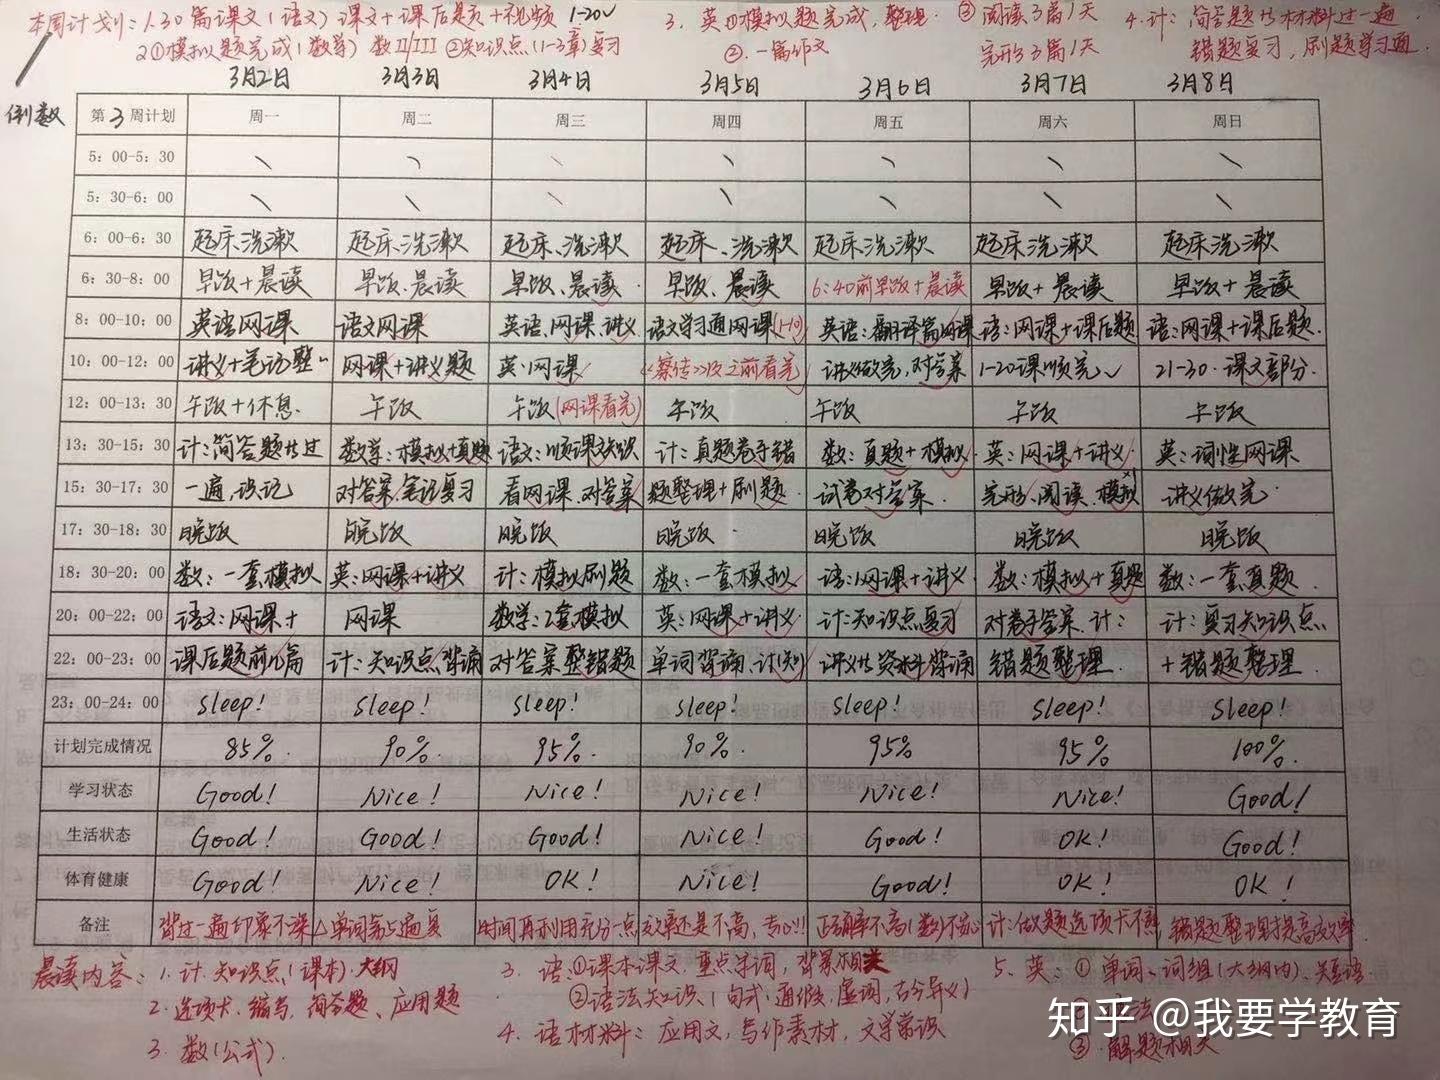 本周计划:1.30篇课文(语文)课文+课后题+视频 1-20√
2①模拟题完成(数学)数II/III ②知识点(1-3章)复习
3.英:①模拟题完成,整理. ③阅读3篇1天
②.一篇作文 完形3篇1天
4.计:简答题材料过一遍
错题复习,刷题学习通
3月2日 3月3日 3月4日 3月5日 3月6日 3月7日 3月8日
倒数 第3周计划 周一 周二 周三 周四 周五 周六 周日
5:00-5:30 \ \ \ \ \ \ \
5:30-6:00 \ \ \ \ \ \ \
6:00-6:30 起床洗漱 起床.洗漱 起床、洗漱 起床、洗漱 起床洗漱 起床洗漱 起床洗漱
6:30-8:00 早饭+晨读 早饭.晨读 早饭、晨读 早饭、晨读 6:40前早饭+晨读 早饭+晨读 早饭+晨读
8:00-10:00 英语网课 语文网课 英语.网课.讲义 语文学习通网课(1-10) 英语:翻译篇网课 语:网课+课后题 语:网课+课后题.
10:00-12:00 讲义+笔记整 网课+讲义题 英.网课 《察传》及之前看完 讲义做完,对答案 1-20课顺完√ 21-30.课文部分.
12:00-13:30 午饭+休息. 午饭 午饭(网课看完) 午饭 午饭 午饭 午饭
13:30-15:30 计:简答题过 数学:模拟+真题 语文:顺课文知识 计:真题卷子错 数:真题+模拟. 英:网课+讲义. 英:词性网课
15:30-17:30 一遍,识记 对答案,笔记复习 看网课.对答案 题整理+刷题. 试卷对答案. 完形、阅读.模拟×1 讲义做完.
17:30-18:30 晚饭 晚饭 晚饭 晚饭 晚饭 晚饭 晚饭
18:30-20:00 数:一套模拟 英:网课+讲义 计:模拟刷题 数:一套模拟 语:网课+讲义. 数:模拟+真题 数:一套真题.
20:00-22:00 语文:网课+ 网课 数学:2套模拟 英:网课+讲义. 计:知识点复习 对卷子答案.计: 计:复习知识点.
22:00-23:00 课后题前几篇 计:知识点背诵 对答案整错题 单词背诵.计(知) 讲义资料背诵 错题整理. +错题整理.
23:00-24:00 sleep! sleep! sleep! sleep! sleep! sleep! sleep!
计划完成情况 85%. 90%. 95%. 90%. 95% 95% 100%.
学习状态 Good! Nice! Nice! Nice! Nice! Nice! Good!
生活状态 Good! Good! Good! Nice! Good! OK! Good!
体育健康 Good! Nice! OK! Nice! Good! OK! OK!
备注 背过一遍印象不深 △单词第5遍复 时间再利用充分一点 效率还是不高,专心!!! 正确率不高(数) 计:做题选项卡不熟 错题整理时提高效率.
晨读内容:1.计.知识点(课本).大纲
2.选项卡.缩写,简答题、应用题
3.数(公式).
3.语:①课本课文.重点字词,背景相关
②语法知识.(句式.通假,虚词,古今异义)
4.语材料:应用文,写作素材,文学常识
5.英:①单词、词组(大纲内)、短语
③.解题相关
知乎 @我要学教育